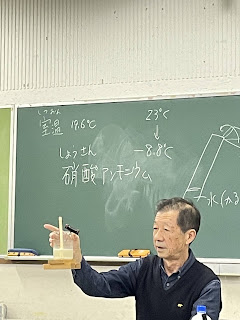 しつおん
室温 19.6℃
23℃
↓
-8.8℃
しょうさん
硝酸アンモニウム
水(か